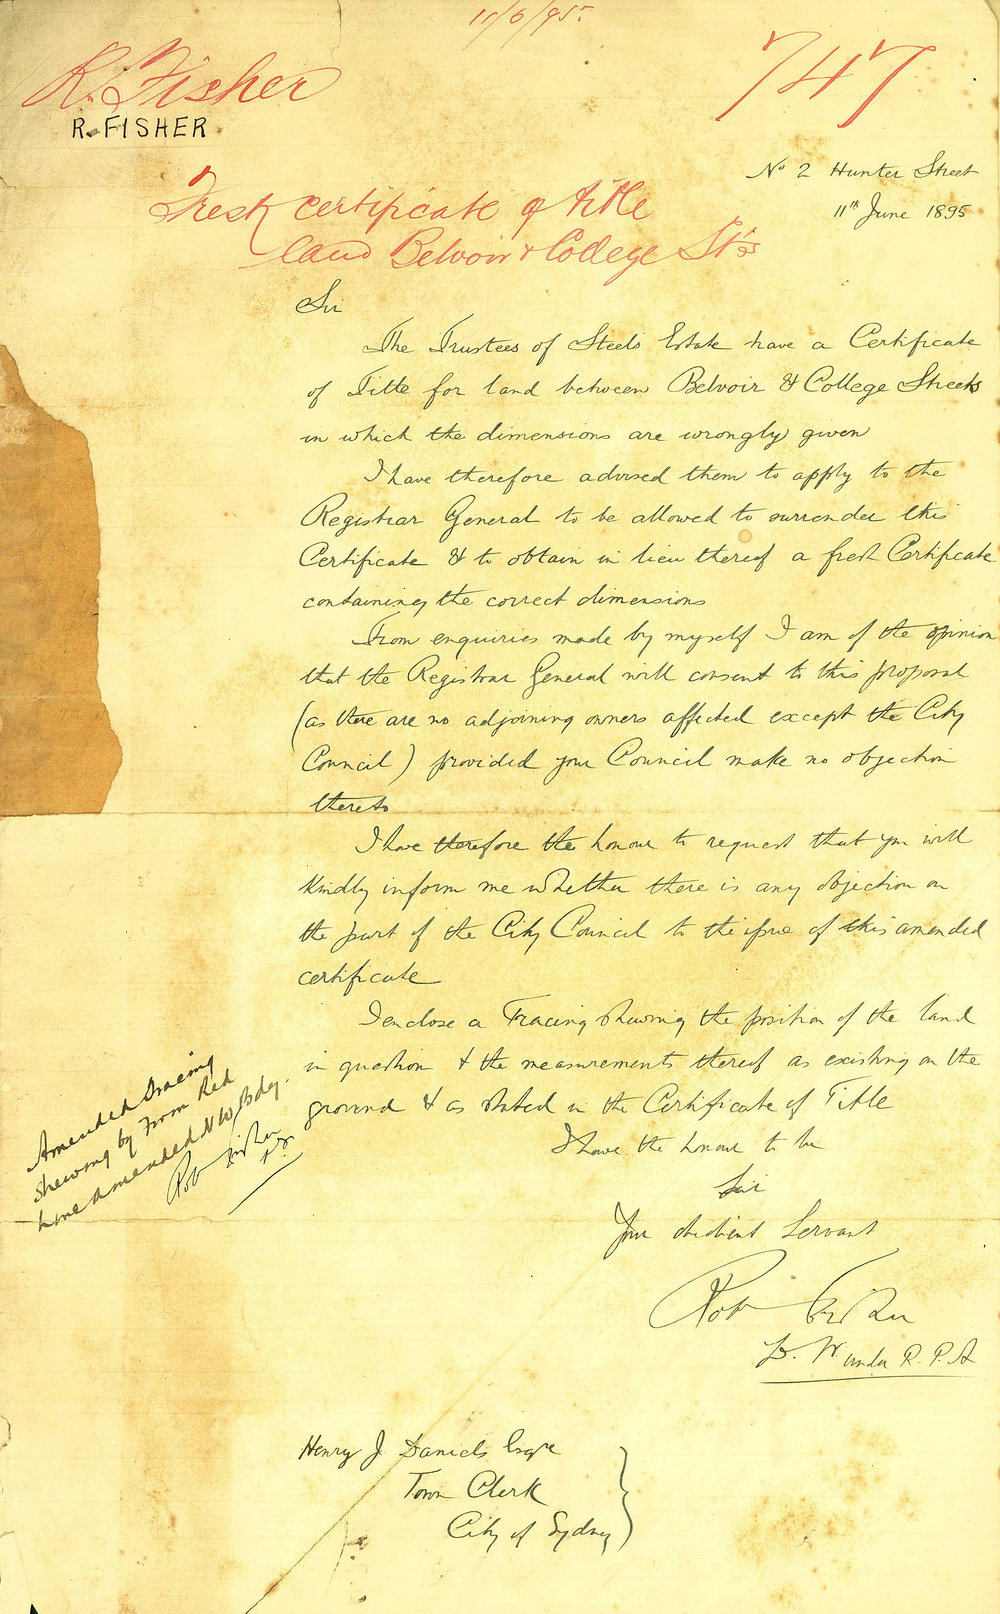 11/6/95
R. Fisher
747
R. FISHER
No 2 Hunter Street
11th June 1895
Fresh Certificate of title
land Belvoir & College Sts
Sir
The Trustees of Steels Estate have a Certificate
of Title for land between Belvoir & College Streets
in which the dimensions are wrongly given
I have therefore advised them to apply to the
Registrar General to be allowed to surrender this
Certificate & to obtain in lieu thereof a fresh Certificate
containing the correct dimensions
From enquiries made by myself I am of the opinion
that the Registrar General will consent to this proposal
(as there are no adjoining owners affected except the City
Council) provided your Council make no objection
thereto
I have therefore the honour to request that you will
kindly inform me whether there is any objection on
the part of the City Council to the issue of this amended
certificate
I enclose a Tracing shewing the position of the land
in question & the measurements thereof as existing on the
ground & as stated in the Certificate of Title
I have the honour to be
Sir
Your obedient Servant
Robt Fisher
L. S. under R. P. A
Amended Tracing
shewing by Firm Red
line amended N W Bdy.
Robt Fisher
L.S.
Henry J Daniels Esqre
Town Clerk
City of Sydney